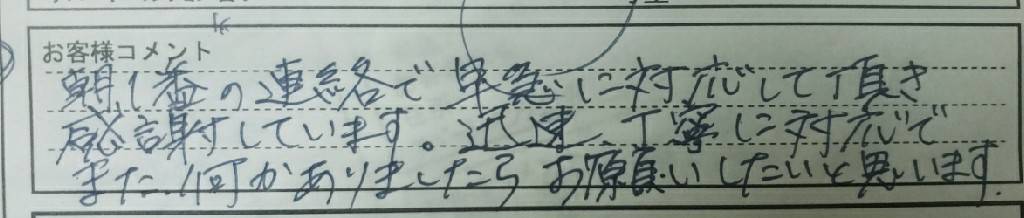 お客様コメント
朝1番の連絡で早急に対応して頂き
感謝しています。迅速、丁寧に対応で
また何かありましたらお願いしたいと思います。